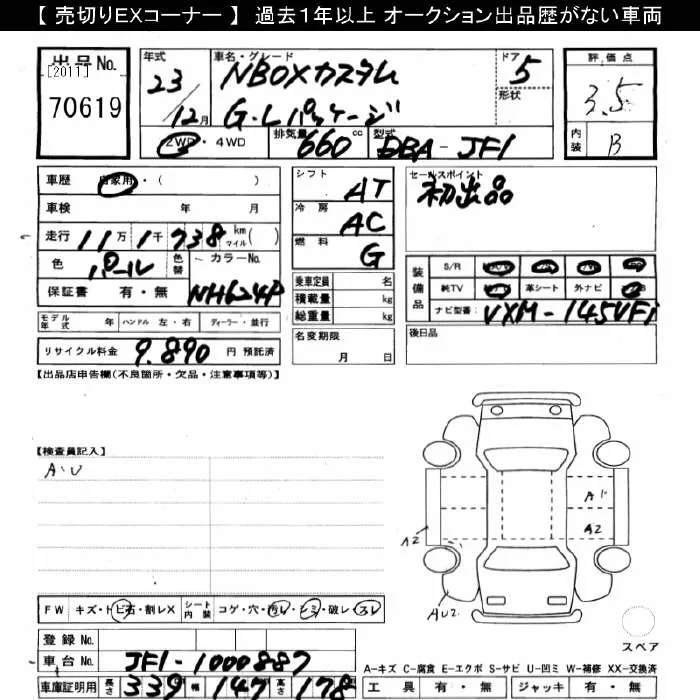 【 売切りEXコーナー 】 過去1年以上 オークション出品歴がない車両
出品No.
[2011]
70619
年式
23
12月
車名・グレード
NBOXカスタム
G・Lパッケージ
ドア
5
形状
評価点
3.5
内装
B
2WD・4WD
排気量
660cc
型式
DBA-JF1
車歴 自家用・( )
車検 年 月
走行 11万1千738 km マイル( )
色 パール 色替 カラーNo.
保証書 有・無 NH624P
モデル年式 年 ハンドル 左・右 ディーラー・並行
リサイクル料金 9.890 円 預託済
シフト AT
冷房 AC
燃料 G
乗車定員 名
積載量 kg
総重量 kg
名変期限
月 日
セールスポイント
初出品
装備品
S/R
純TV 革シート 外ナビ
ナビ型番: VXM-145VFi
後日品
【出品店申告欄(不良箇所・欠品・注意事項等)】
【検査員記入】
A・U
A1
A2
A2
AU2
FW キズ・トビ石・割レX シート内装 コゲ・穴・汚レ・シミ・破レ・スレ
登録 No.
車台 No. JF1-1000887
車庫証明用 長さ 339 幅 147 高さ 178
スペア
A-キズ C-腐食 E-エクボ S-サビ U-凹ミ W-補修 XX-交換済
工具 有・無 ジャッキ 有・無